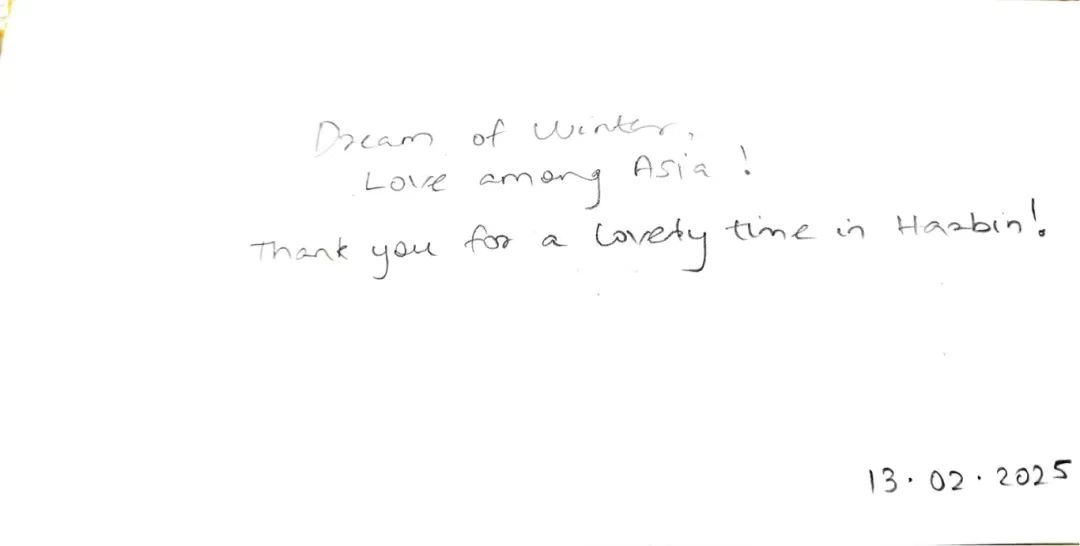 Dream of Winter,
Love among Asia!
Thank you for a lovely time in Harbin!
13.02.2025